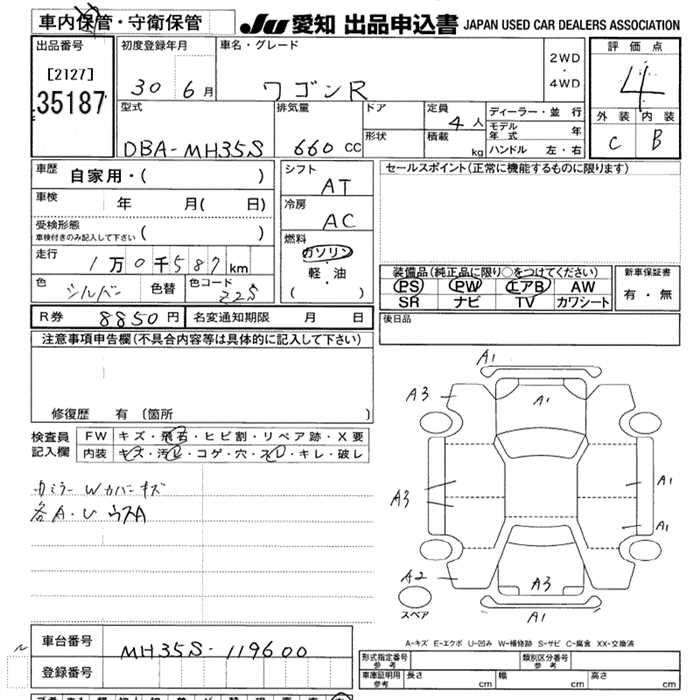 車内保管・守衛保管
JU 愛知 出品申込書 JAPAN USED CAR DEALERS ASSOCIATION
出品番号
[2127]
35187
初度登録年月
30 6月
車名・グレード
ワゴンR
2WD
・
4WD
評価点
4
外装 内装
C B
型式
DBA-MH35S
排気量
660 CC
ドア
形状
定員
4人
積載
kg
ディーラー・並行
モデル年式 年
ハンドル 左・右
車歴 自家用・( )
車検 年 月( 日)
受検形態
車検付きのみ記入して下さい ( )
走行 1万0千587km
色 シルバー 色替 色コード Z2S
シフト
AT
冷房
AC
燃料
ガソリン
軽・油
( )
セールスポイント(正常に機能するものに限ります)
装備品(純正品に限り○をつけてください)
PS PW エアB AW
SR ナビ TV カワシート
新車保証書
有・無
R券 8850円 名変通知期限 月 日
後日品
注意事項申告欄(不具合内容等は具体的に記入して下さい)
修復歴 有 〔箇所 〕
検査員記入欄
FW キズ・飛石・ヒビ割・リペア跡・X要
内装 キズ・汚レ・コゲ・穴・スレ・キレ・破レ
カミラーWカバーキズ
各A・U ウスA
A1
A3
A1
A3
A1
A1
A2
A3
A1
スペア
A-キズ E-エクボ U-凹み W-補修跡 S-サビ C-腐食 XX-交換済
車台番号 MH35S-119600
登録番号
型式指定番号 参考
類別区分番号 参考
車庫証明用 参考 長さ cm 幅 cm 高さ cm